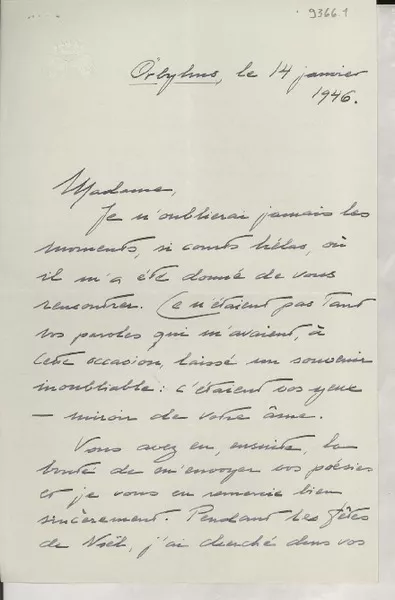 9366.1
Örbyhus, le 14 janvier
1946.
Madame,
Je n'oublierai jamais les
moments, si courts hélas, où
il m'a été donné de vous
rencontrer. Ce n'étaient pas tant
vos paroles qui m'avaient, à
cette occasion, laissé un souvenir
inoubliable : c'étaient vos yeux
— miroir de votre âme.
Vous avez eu, ensuite, la
bonté de m'envoyer vos poésies
et je vous en remercie bien
sincèrement. Pendant les fêtes
de Noël, j'ai cherché dans vos